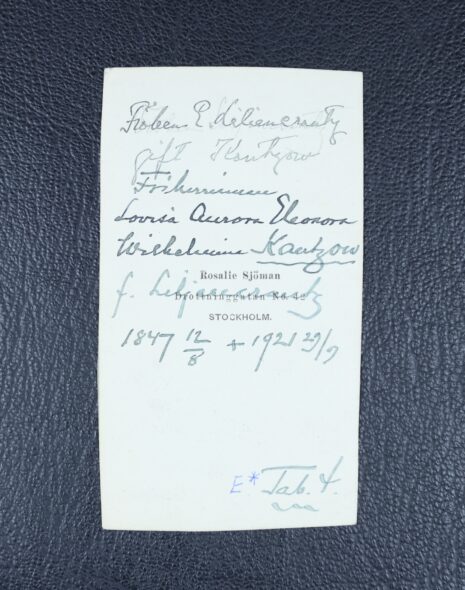 Fröken E. Liliencrantz
gift Kantzow
Friherrinnan
Lovisa Aurora Eleonora
Wilhelmina Kantzow
Rosalie Sjöman
f. Liljencrantz
Drottninggatan No. 42
STOCKHOLM.
1847 12/8 + 1921 29/9
E* Tab. 4.